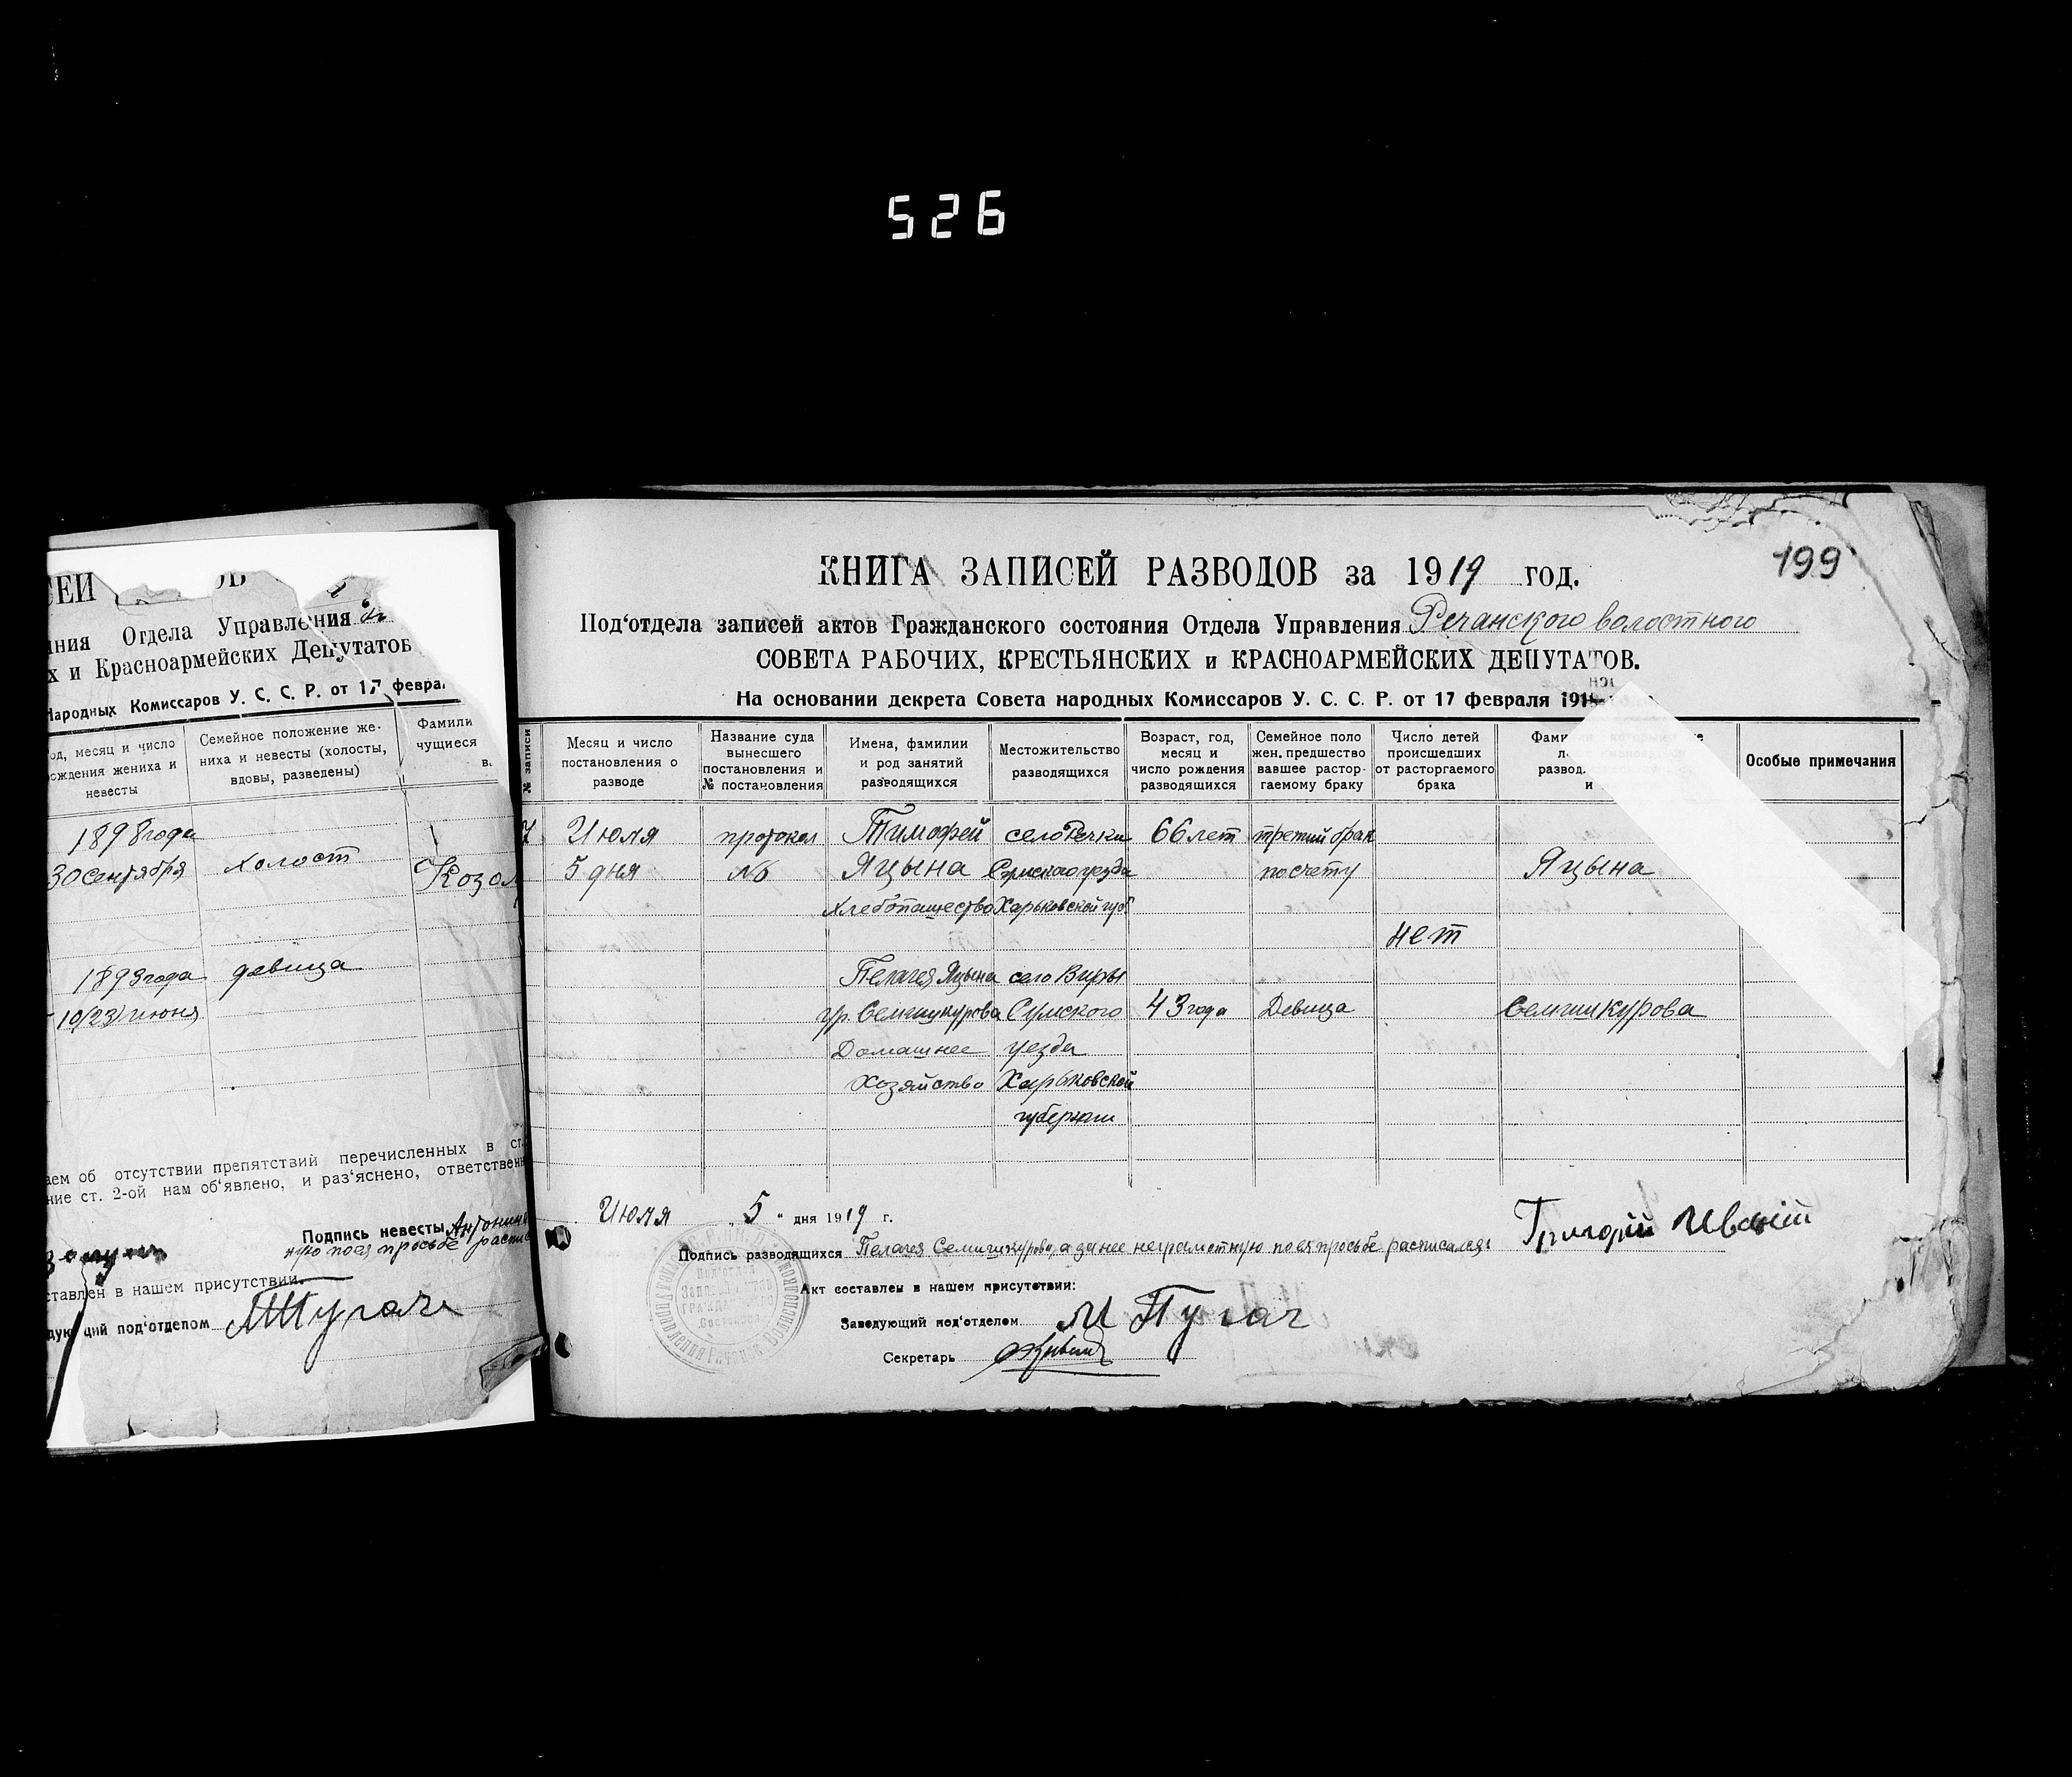 526
СЕЙ
Отдела Управления
х и Красноармейских Депутатов
Народных Комиссаров У. С. С. Р. от 17 февра
од, месяц и число
рождения жениха и
невесты
Семейное положение же-
ниха и невесты (холосты,
вдовы, разведены)
Фамили
чущиеся
в
1898 года
30 сентября
холост
Козол
1893 года
девица
10/23 июня
аем об отсутствии препятствий перечисленных в ст.
ние ст. 2-ой нам об'явлено, и раз'яснено, ответствен
Подпись невесты Антонина
по ея просьбе распис
ставлен в нашем присутствии.
дующий под'отделом МПугач
199
КНИГА ЗАПИСЕЙ РАЗВОДОВ за 1919 год.
Под'отдела записей актов Гражданского состояния Отдела Управления Речанского волостного
СОВЕТА РАБОЧИХ, КРЕСТЬЯНСКИХ и КРАСНОАРМЕЙСКИХ ДЕПУТАТОВ.
На основании декрета Совета народных Комиссаров У. С. С. Р. от 17 февраля 191
№ записи
Месяц и число
постановления о
разводе
Название суда
вынесшего
постановления и
№ постановления
Имена, фамилии
и род занятий
разводящихся
Местожительство
разводящихся
Возраст, год,
месяц и
число рождения
разводящихся
Семейное поло
жен. предшество
вавшее растор-
гаемому браку
Число детей
происшедших
от расторгаемого
брака
Фами
развод
и
Особые примечания
7 Июля протокол Тимофей село Речки 66 лет третий брак
5 дня №6 Яцына Сумского уезда по счету Яцына
Хлебопашество Харьковской губ.
нет
Пелагея Яцына село Виры
ур. Семишкурова Сумского 43 года Девица Семишкурова
Домашнее уезда
Хозяйство Харьковской
губернии
Июля „5" дня 1919 г.
Подпись разводящихся Пелагея Семишкурова, а за нее неграмотную по ея просьбе расписался Григорій Иваній
Акт составлен в нашем присутствии:
Заведующий под'отделом М Пугач
Секретарь